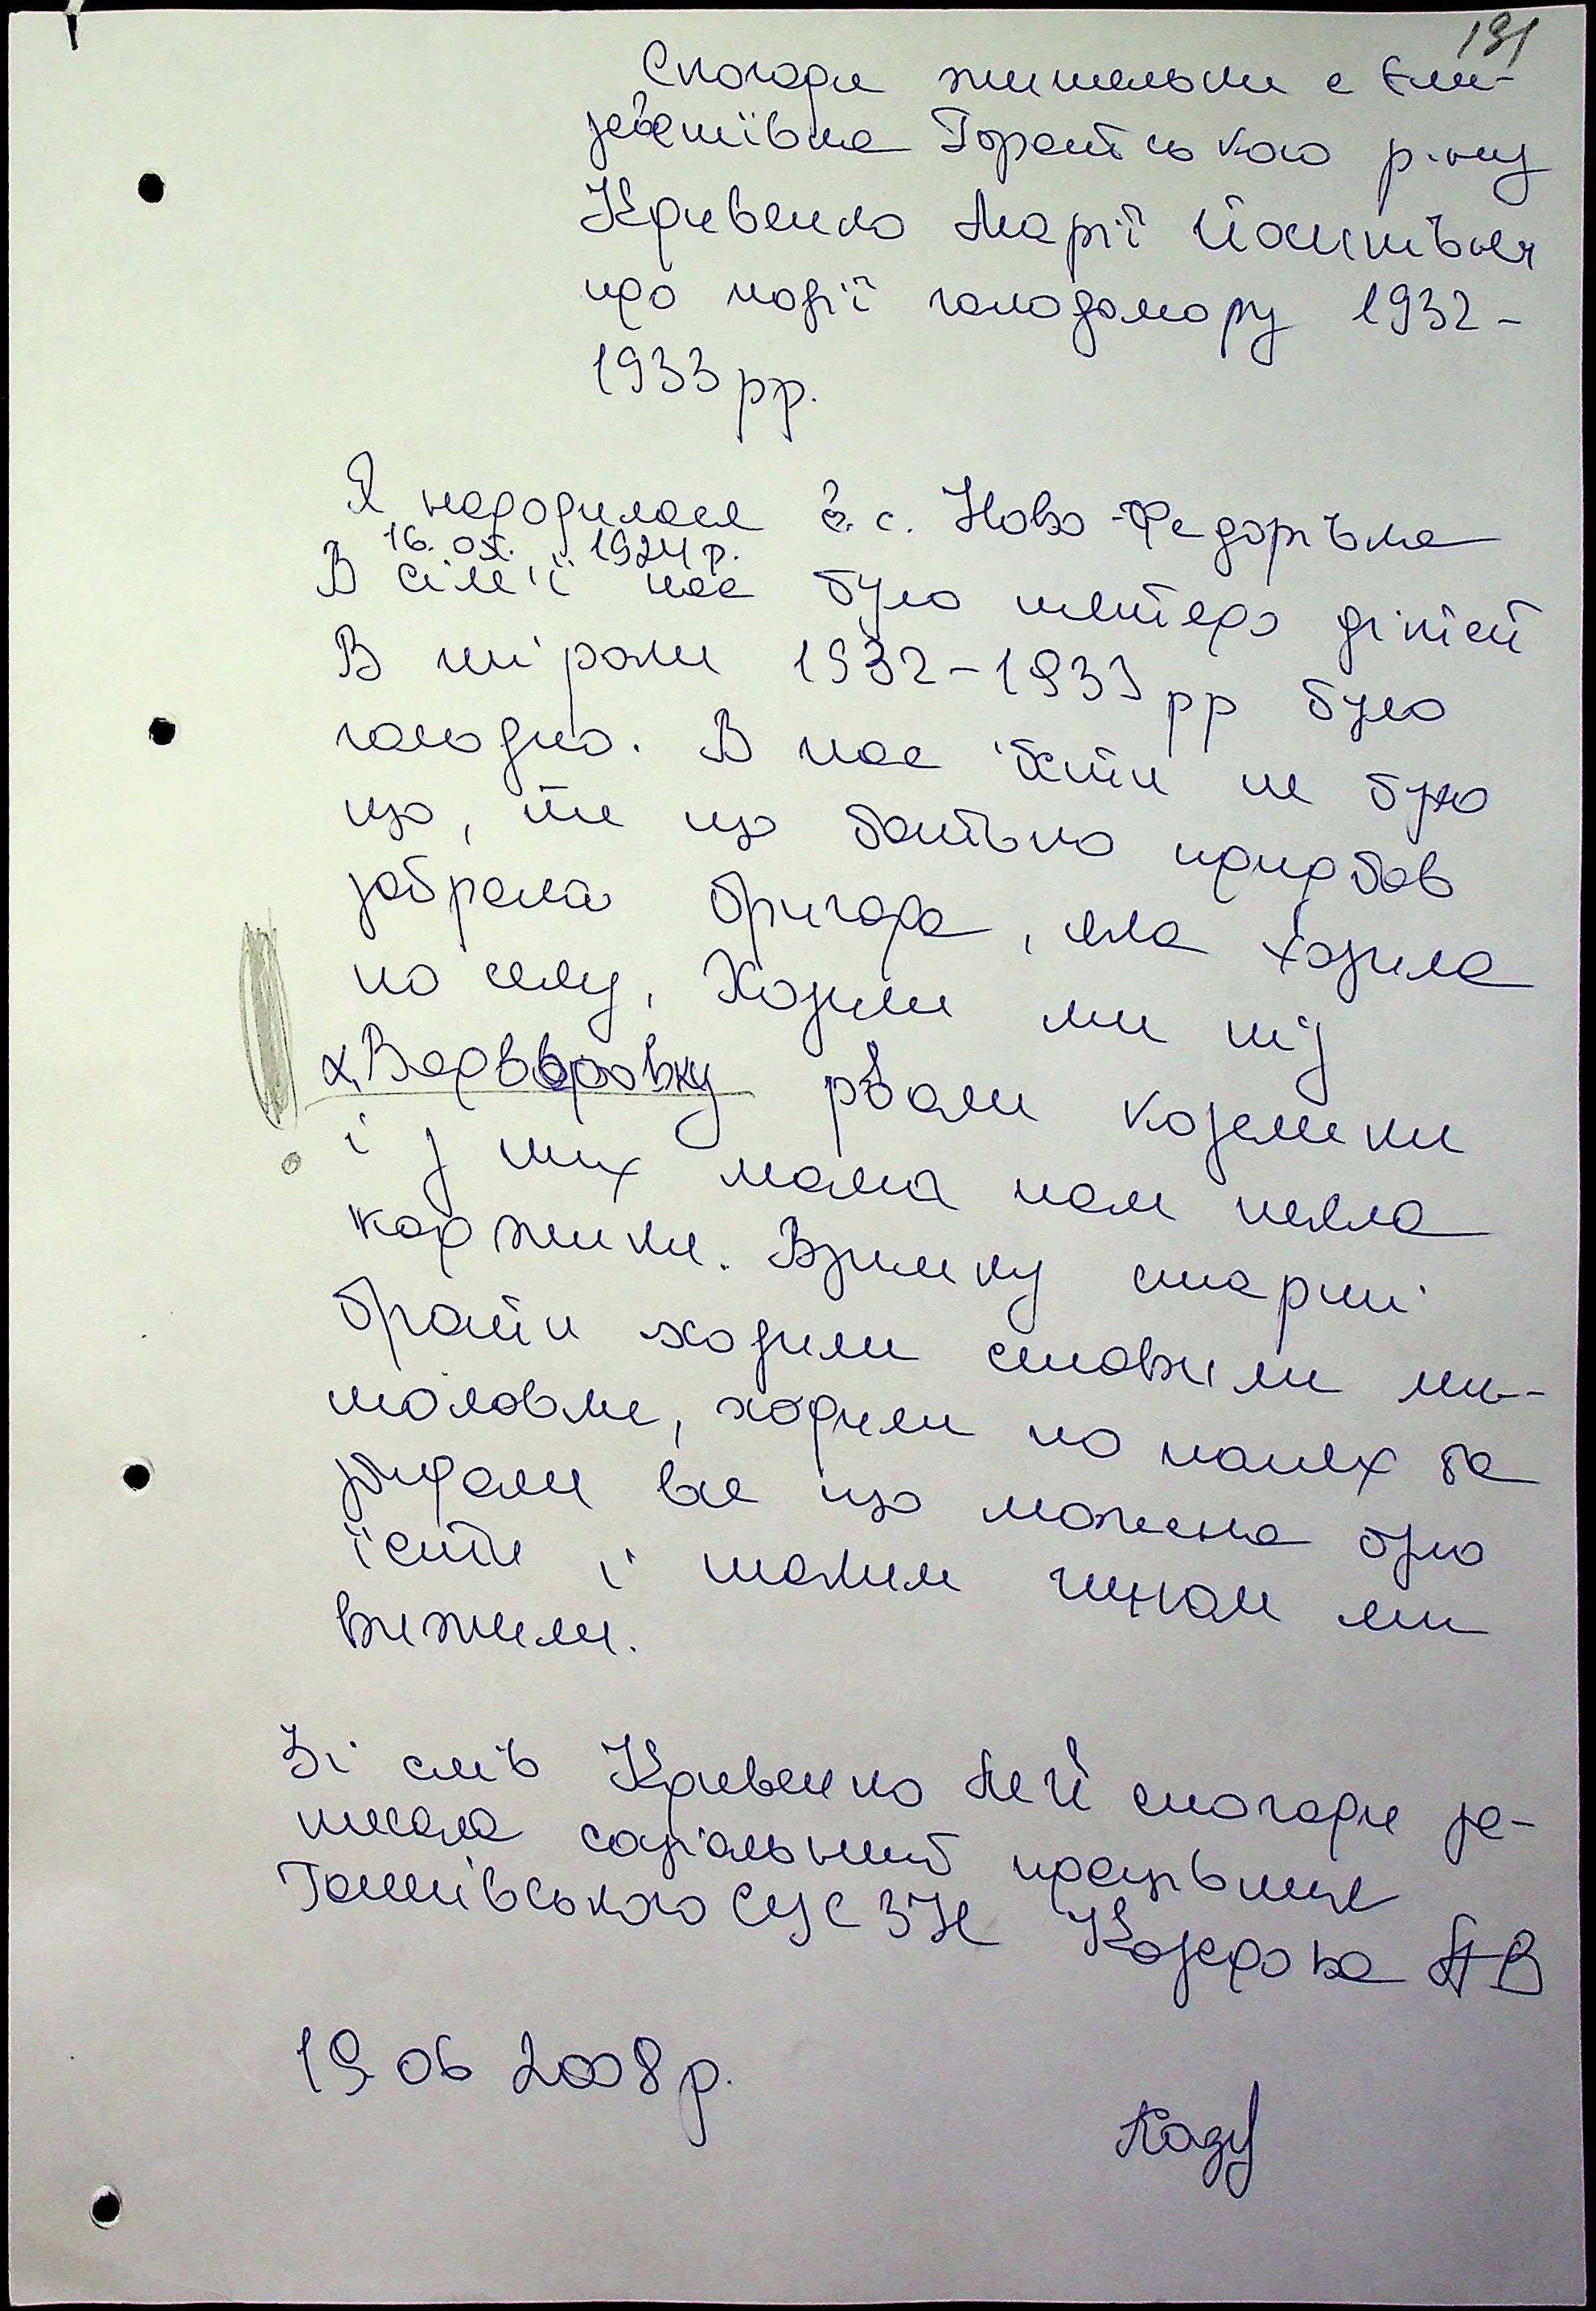 191
Спогади жительки с Єли-
заветівка Гораб ського р-ну
Кривенко Марії Йосипівни
про події голодомору 1932-
1933 рр.
Я народилася в с. Ново-Федорівка
16. 1924 р.
В сім'ї нас було шестеро дітей
В ті роки 1932-1933 рр було
голодно. В нас їсти не було
що, те що батько придбав
забрала бригада, яка ходила
по селу. Ходили ми під
х. Варваровку рвали козельки
і з них мама нам пекла
коржики. Взимку старші
брати ходили ставили ми-
шоловки, ходили по полях та
збирали все що можна було
їсти і таким чином ми
вижили.
Зі слів Кривенко М Й спогади за-
писала соціальний працівник
СУСЗН Козерова В
19 06 2008 р.